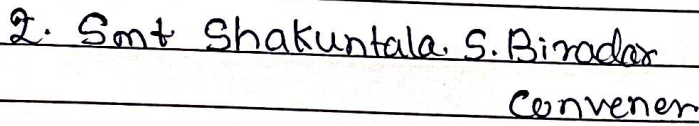 2. Smt Shakuntala. S. Biradar
Convener